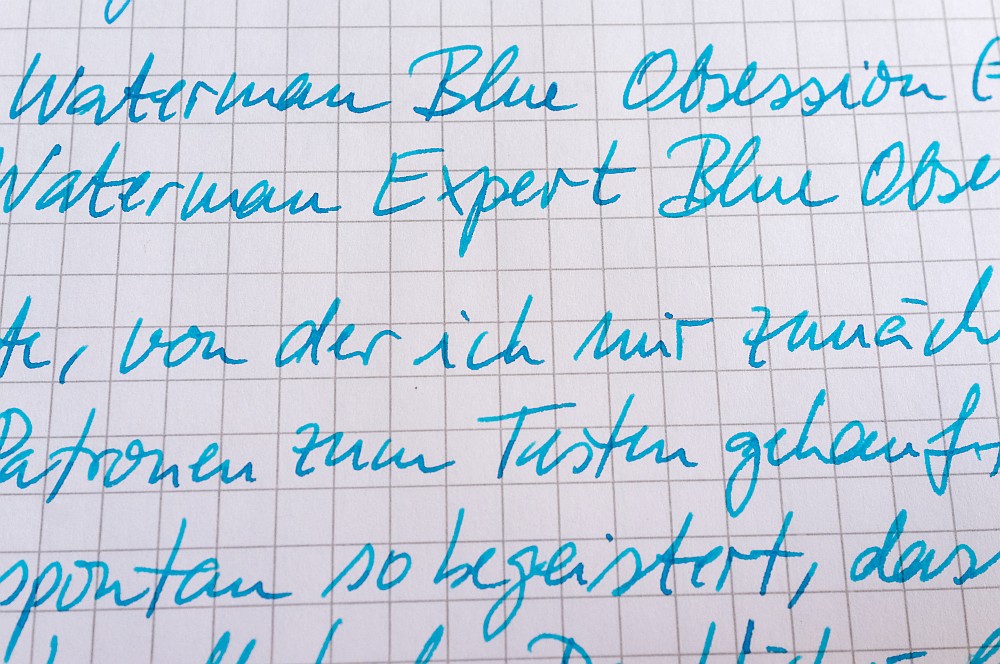 Waterman Blue Obsession
Waterman Expert Blue Obse
te, von der ich mir zunäch
Patronen zum Testen gekauft
spontan so begeistert, dass